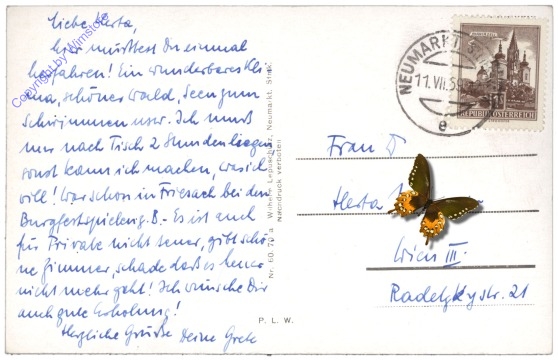 Liebe Herta,
Hier müßtest Du einmal
herfahren! Ein wunderbares Kli=
ma, schöner Wald, See zum
Schwimmen usw. Ich muß
nur nach Tisch 2 Stunden liegen
sonst kann ich machen, was ich
will! War schon in Friesach bei den
Burgfestspielen z.B.- Es ist auch
für Private nicht teuer, gibt schö=
ne Zimmer, schade daß es heuer
nicht mehr geht! Ich wünsche Dir
auch gute Erholung!
Herzliche Grüße Deine Grete
Copyright by Wimstore
Nr. 60.70 a Wilhelm Lepuschütz, Neumarkt, Stmk.
Nachdruck verboten
P. L. W.
NEUMARKT
11.VII.59
e
REPUBLIK ÖSTERREICH
Frau
Herta
Wien III.
Radetzkystr. 21